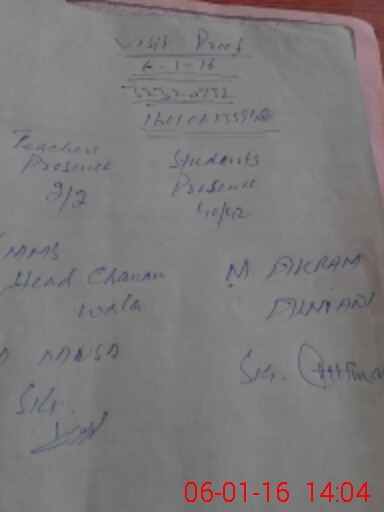 Visit Proof
6-1-16
32320732
Teachers
Presence
2/2
Students
Presence
40/42
MMS
Head Chanan
wala
M. AKRAM
Sig.
Sig.
06-01-16 14:04